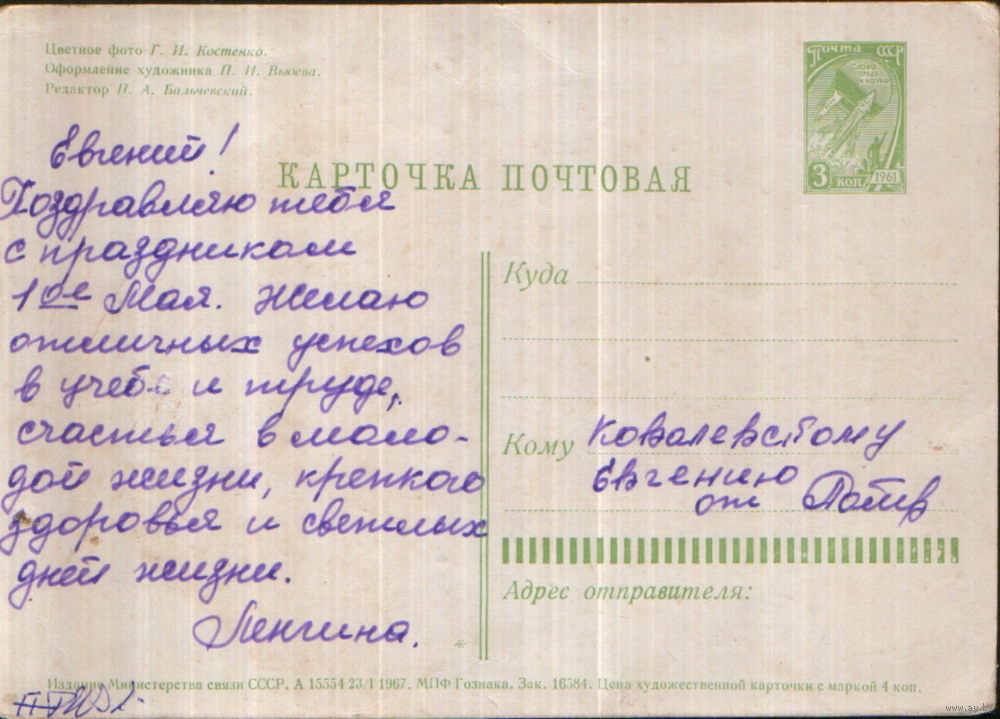 Цветное фото Г. И. Костенко.
Оформление художника П. И. Вьюева.
Редактор П. А. Бальчевский.
Почта СССР
СЛАВА
ТРУДУ
И НАУКЕ
3 коп
1961
КАРТОЧКА ПОЧТОВАЯ
Евгений!
Поздравляю тебя
с праздником
1ое Мая. Желаю
отличных успехов
в учебе и труде,
счастья в моло-
дой жизни, крепкого
здоровья и светлых
дней жизни.
Куда
Кому Ковалевскому
Евгению
от
Адрес отправителя:
Издание Министерства связи СССР. А 15554 23/I 1967. МПФ Гознака. Зак. 16584. Цена художественной карточки с маркой 4 коп.
www.ay.by